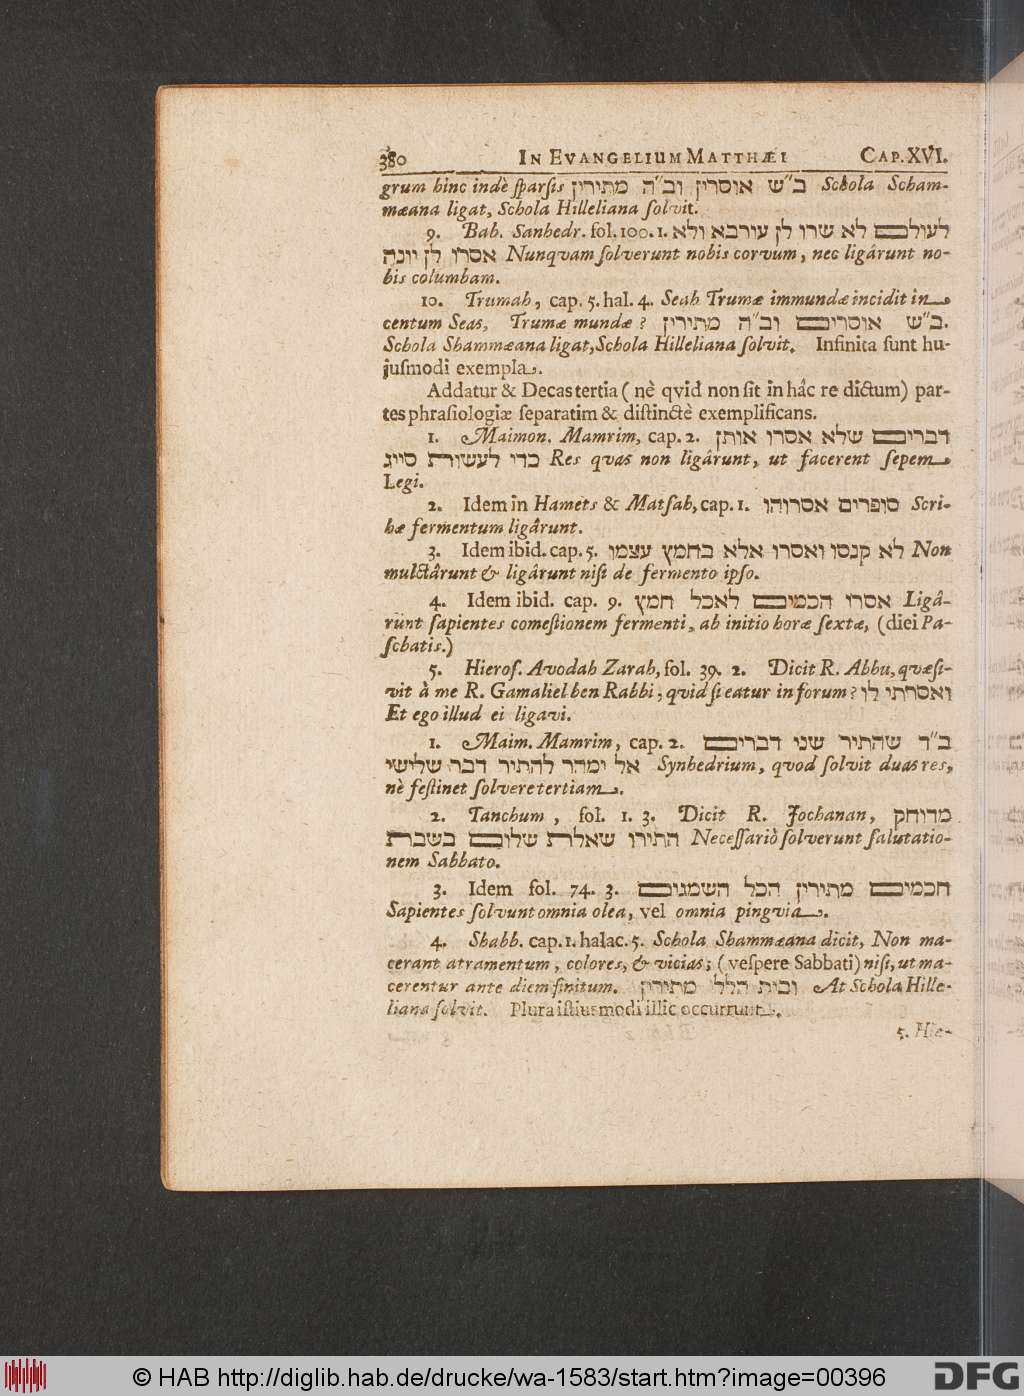 380 IN EVANGELIUM MATTHÆI CAP. XVI.
grum hinc indè ſparſis ב״ש אוסרין וב״ה מתירין Schola Scham-
mæana ligat, Schola Hilleliana ſolvit.
9. Bab. Sanhedr. fol. 100. 1. לעולם לא שרו לן עורבא ולא
אסרו לן יונה Nunqvam ſolverunt nobis corvum, nec ligârunt no-
bis columbam.
10. Trumah, cap. 5. hal. 4. Seah Trumæ immundæ incidit in
centum Seas, Trumæ mundæ? ב״ש אוסרים וב״ה מתירין.
Schola Shammæana ligat, Schola Hilleliana ſolvit. Infinita ſunt hu-
juſmodi exempla.
Addatur & Decas tertia (nè qvid non ſit in hâc re dictum) par-
tes phraſiologiæ ſeparatim & diſtinctè exemplificans.
1. Maimon. Mamrim, cap. 2. דברים שלא אסרו אותן
כדי לעשות סייג Res qvas non ligârunt, ut facerent ſepem
Legi.
2. Idem in Hamets & Matſah, cap. 1. סופרים אסרוהו Scri-
bæ fermentum ligârunt.
3. Idem ibid. cap. 5. לא קנסו ואסרו אלא בחמץ עצמו Non
mulctârunt & ligârunt niſi de fermento ipſo.
4. Idem ibid. cap. 9. אסרו הכמים לאכל חמץ Ligâ-
runt ſapientes comeſtionem fermenti, ab initio horæ ſextæ, (diei Pa-
ſchatis.)
5. Hieroſ. Avodah Zarah, fol. 39. 2. Dicit R. Abhu, qvæſi-
vit à me R. Gamaliel ben Rabbi; qvid ſi eatur in forum? ואסרתי לו
Et ego illud ei ligavi.
1. Maim. Mamrim, cap. 2. ב״ד שהתיר שני דברים
אל ימהר להתיר דבר שלישי Synhedrium, qvod ſolvit duas res,
nè feſtinet ſolvere tertiam.
2. Tanchum, fol. 1. 3. Dicit R. Jochanan, מדוחק
התירו שאלת שלום בשבת Neceſſariò ſolverunt ſalutatio-
nem Sabbato.
3. Idem fol. 74. 3. חכמים מתירין הכל השמנים
Sapientes ſolvunt omnia olea, vel omnia pingvia.
4. Shabb. cap. 1. halac. 5. Schola Shammæana dicit, Non ma-
cerant atramentum, colores, & vicias; (veſpere Sabbati) niſi, ut ma-
cerentur ante diem finitum. ובית הלל מתירין At Schola Hille-
liana ſolvit. Plura iſtiusmodi illic occurrunt.
5. Hie-
© HAB http://diglib.hab.de/drucke/wa-1583/start.htm?image=00396
DFG